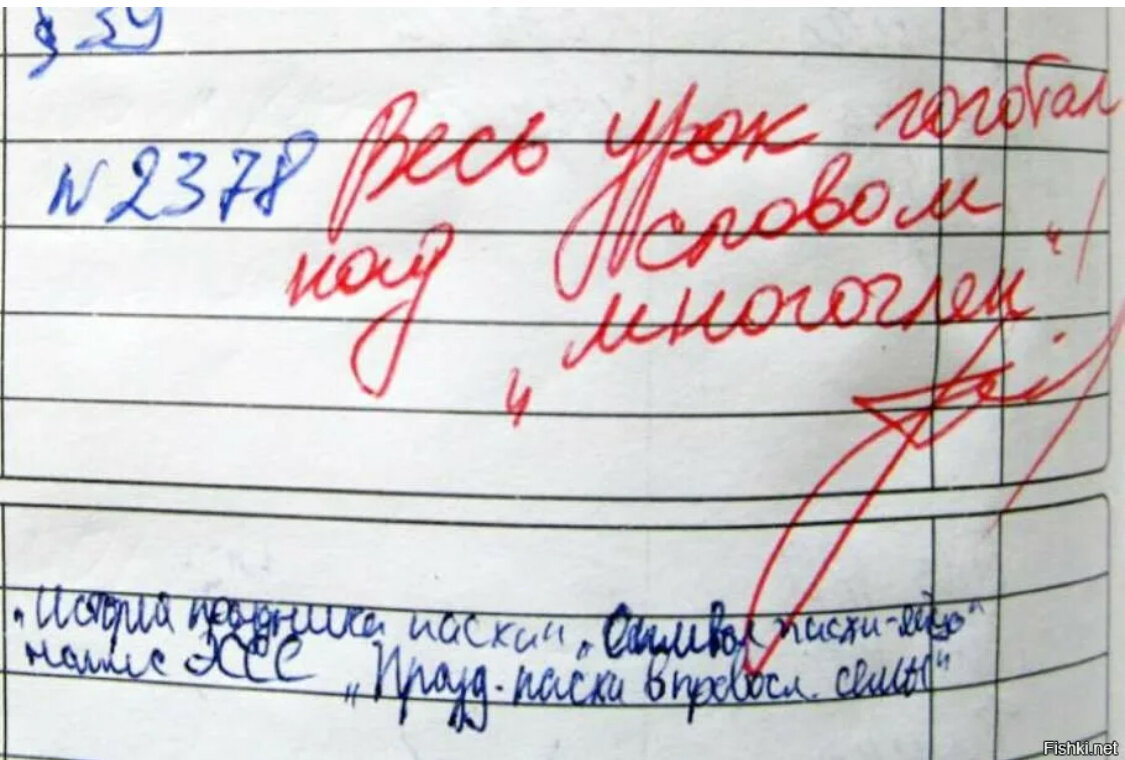 § 39
№ 2378
Весь урок гоготал
над словом
„многочлен"
„История праздника пасхи" „Символ пасхи-яйцо"
напис ЭССЕ „Празд. пасхи в правосл. семье"
Fishki.net